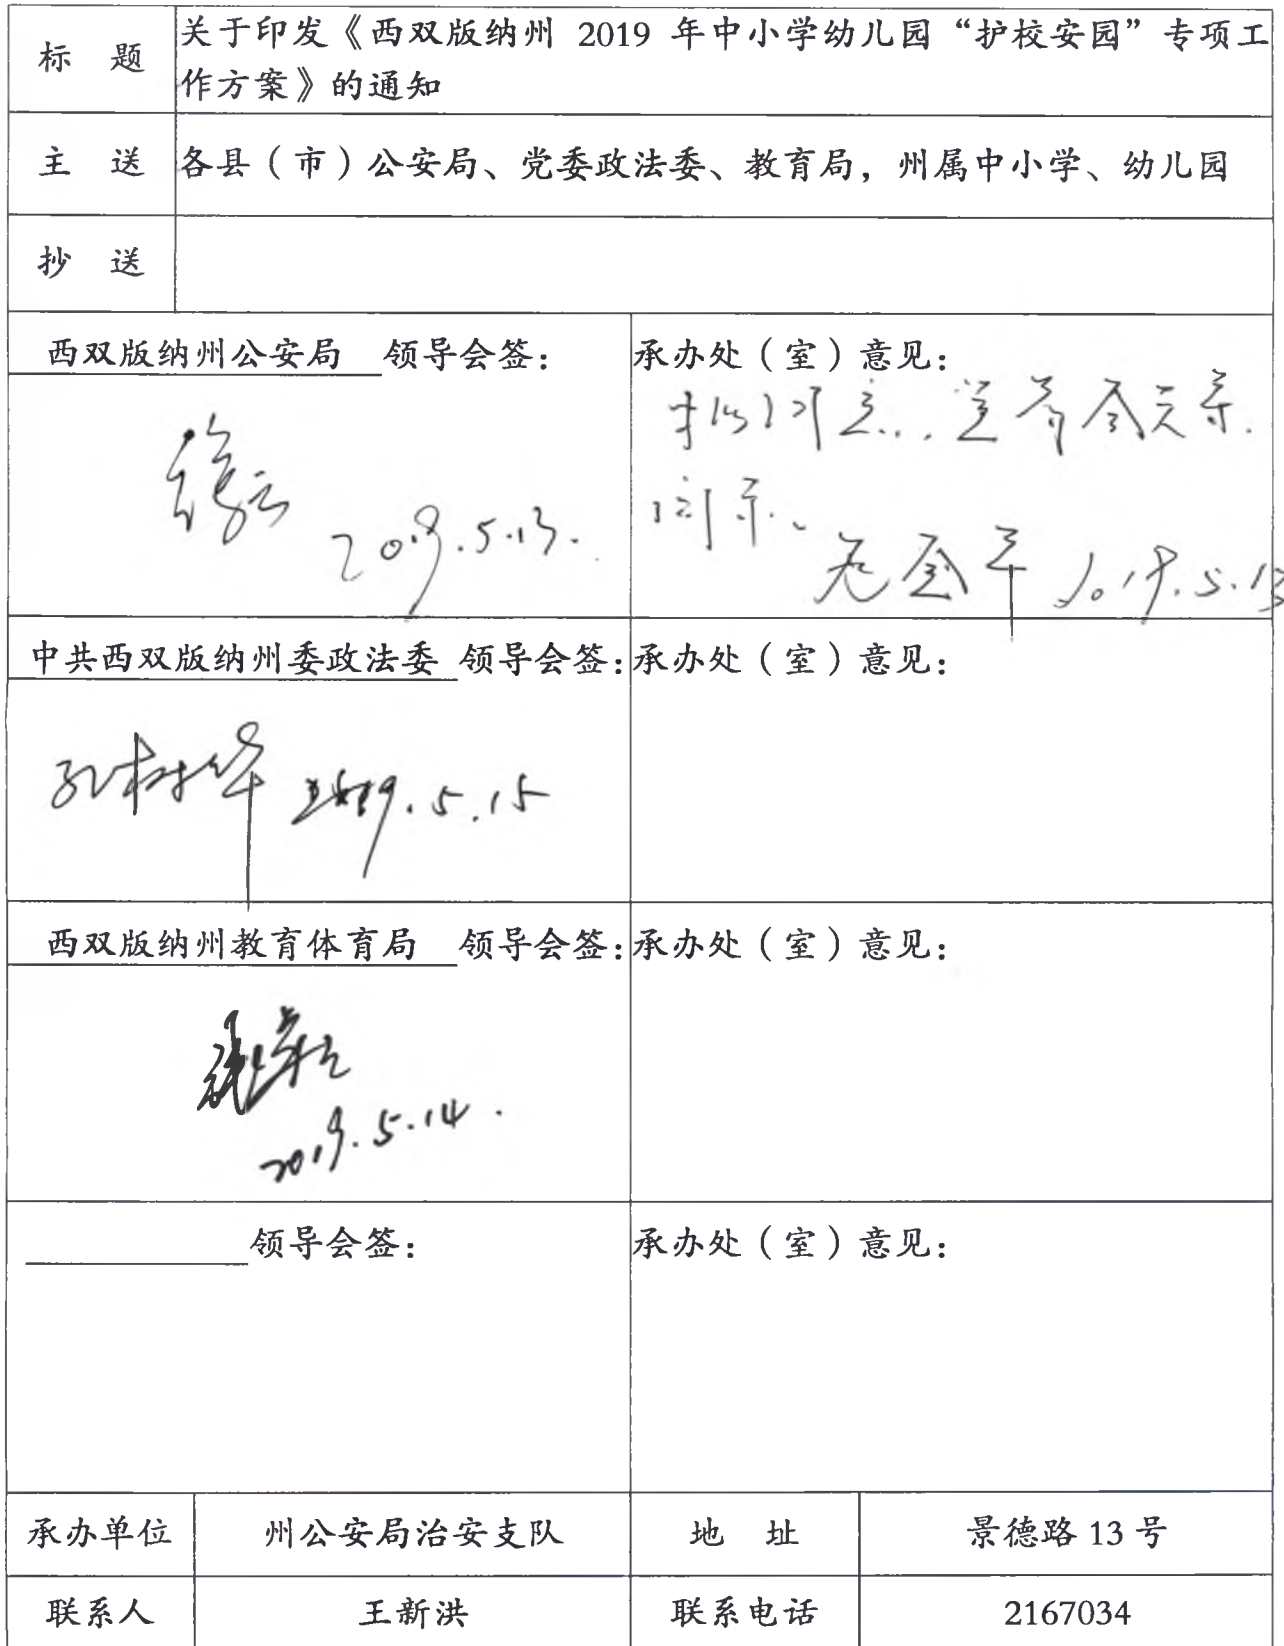 标 题
关于印发《西双版纳州 2019 年中小学幼儿园“护校安园”专项工
作方案》的通知
主 送
各县（市）公安局、党委政法委、教育局，州属中小学、幼儿园
抄 送
西双版纳州公安局 领导会签：
2019.5.13.
承办处（室）意见：
2019.5.13
中共西双版纳州委政法委 领导会签：
孔树华 2019.5.15
承办处（室）意见：
西双版纳州教育体育局 领导会签：
2019.5.14.
承办处（室）意见：
领导会签：
承办处（室）意见：
承办单位
州公安局治安支队
地 址
景德路 13 号
联系人
王新洪
联系电话
2167034